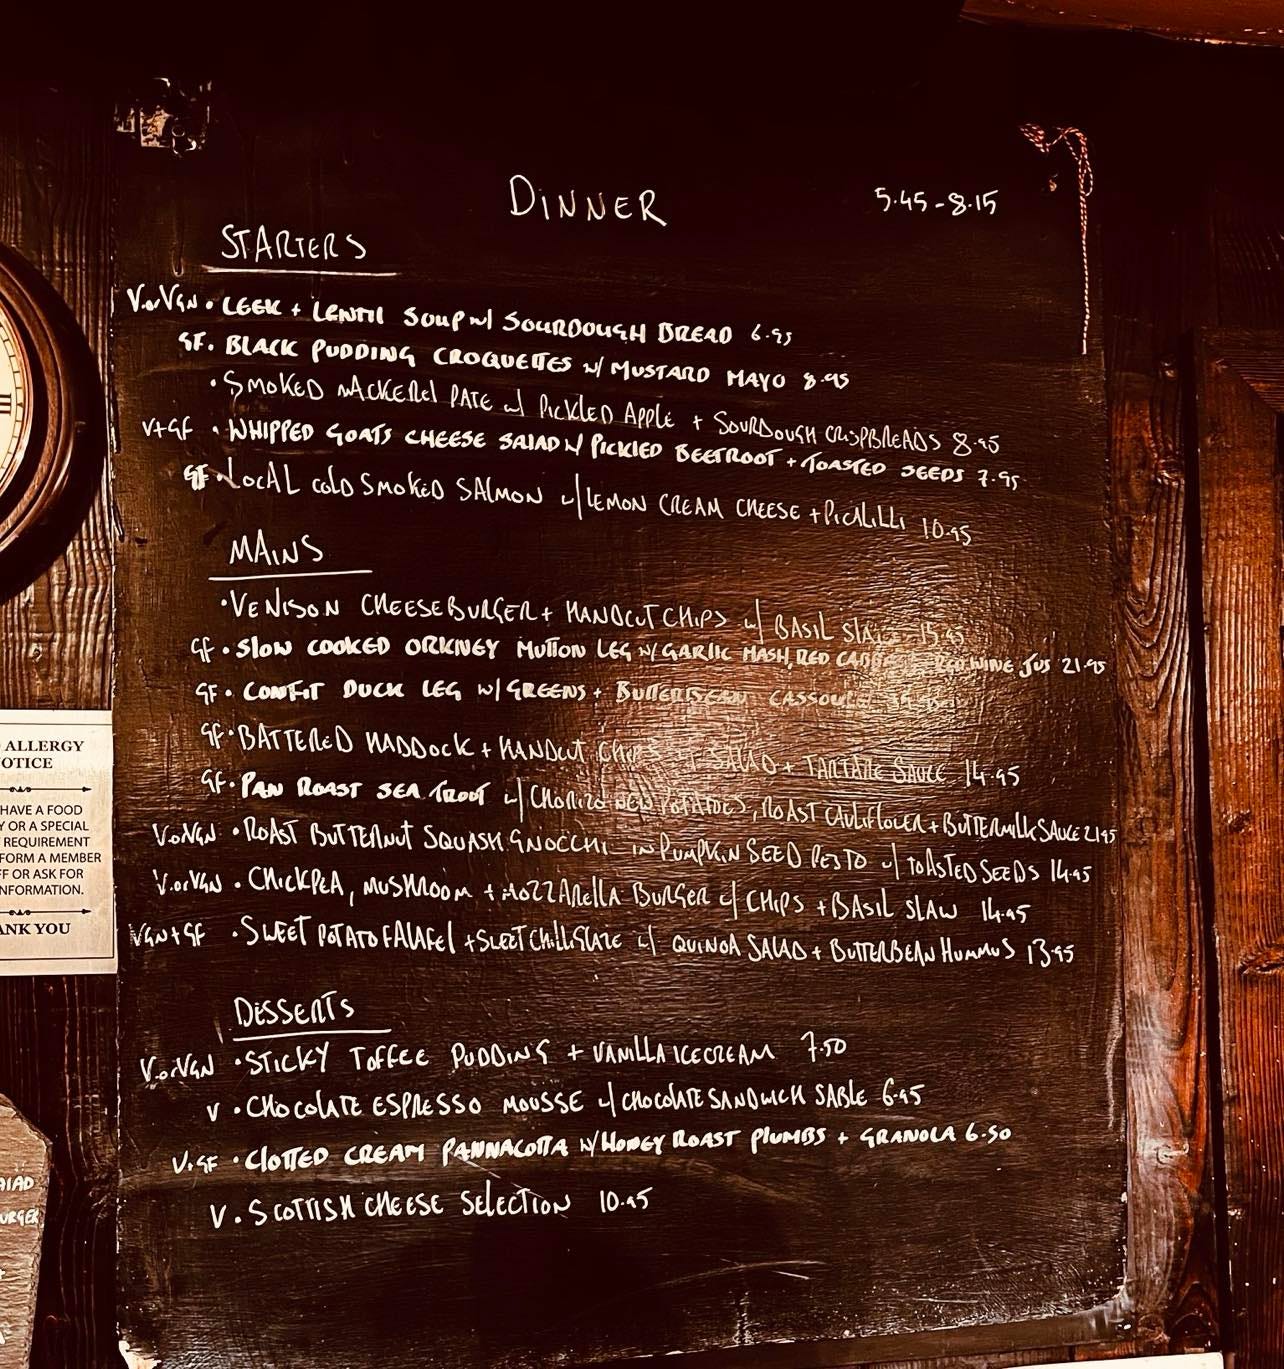 DINNER 5.45-8.15
STARTERS
V.orVGN • LEEK + LENTIL SOUP w/ SOURDOUGH BREAD 6.95
GF. BLACK PUDDING CROQUETTES w/ MUSTARD MAYO 8.95
• SMOKED MACKEREL PATE w/ PICKLED APPLE + SOURDOUGH CRISPBREADS 8.95
V+GF • WHIPPED GOATS CHEESE SALAD w/ PICKLED BEETROOT + TOASTED SEEDS 7.95
GF • LOCAL COLD SMOKED SALMON w/ LEMON CREAM CHEESE + PICALILLI 10.95
MAINS
• VENISON CHEESEBURGER + HANDCUT CHIPS w/ BASIL SLAW 15.95
GF • SLOW COOKED ORKNEY MUTTON LEG w/ GARLIC MASH, RED CABBAGE RED WINE JUS 21.95
GF • CONFIT DUCK LEG w/ GREENS + BUTTERBEAN CASSOULET
GF • BATTERED HADDOCK + HANDCUT CHIPS SALAD + TARTARE SAUCE 14.95
GF • PAN ROAST SEA TROUT w/ CHORIZO NEW POTATOES, ROAST CAULIFLOWER + BUTTERMILK SAUCE 21.95
V.orVGN • ROAST BUTTERNUT SQUASH GNOCCHI IN PUMPKIN SEED PESTO w/ TOASTED SEEDS 14.95
V.orVGN • CHICKPEA, MUSHROOM + MOZZARELLA BURGER w/ CHIPS + BASIL SLAW 14.95
VGN+GF • SWEET POTATO FALAFEL + SWEET CHILLI GLAZE w/ QUINOA SALAD + BUTTERBEAN HUMMUS 13.95
DESSERTS
V.orVGN • STICKY TOFFEE PUDDING + VANILLA ICECREAM 7.50
V • CHOCOLATE ESPRESSO MOUSSE w/ CHOCOLATE SANDWICH SABLE 6.95
V+GF • CLOTTED CREAM PANNACOTTA w/ HONEY ROAST PLUMBS + GRANOLA 6.50
V • SCOTTISH CHEESE SELECTION 10.95
ALLERGY
OTICE
HAVE A FOOD
Y OR A SPECIAL
REQUIREMENT
FORM A MEMBER
FF OR ASK FOR
NFORMATION.
ANK YOU